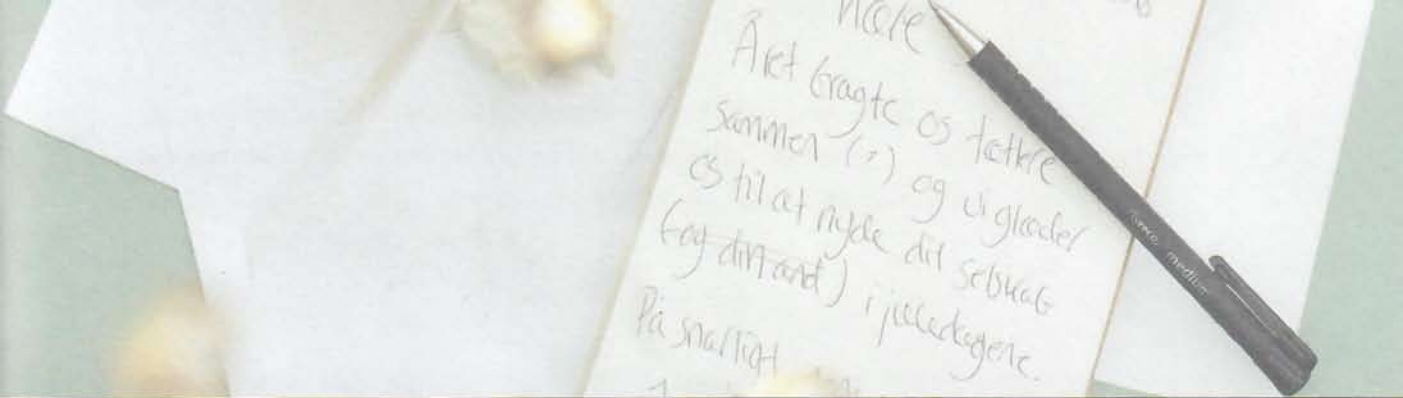 Kære
Året bragte os tættere
sammen (!) og vi glæder
os til at nyde dit selskab
(og din and) i juledagene.
På snarligt
medium